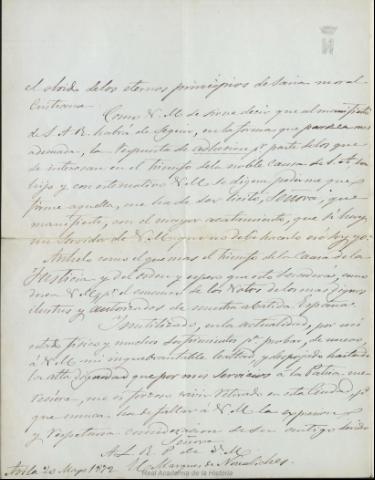 el olvido de los eternos principios de sana moral
Cristiana.
Como V. M. se sirve decir que al manifiesto
de S. A. R. habrá de seguir, en la forma que parezca mas
adecuada, la respuesta de adhesion pr parte de los que
se interesan en el triunfo de la noble causa de S. A. su
hijo y con este motivo V. M. se digna pedirme que
firme aquella, me ha de ser lícito, Señora, que
manifieste, con el mayor acatamiento, que si hay
un servidor de V. M. que no debe hacerlo soy yo.
Anhelo como el que mas el triunfo de la causa de la
Justicia y del orden y espero que esto sucederá, como
dice V. M. pr el concurso de los Votos de los mas dignos
ilustres y autorizados de nuestra abatida España.
Inutilizado, en la actualidad, por mi
estado físico y muchos sufrimientos pa probar, de nuevo
á V. M. mi inquebrantable lealtad y despojado hasta de
la alta dignidad que por mis servicios á la Patria me
me es forzoso vivir retirado en esta Ciudad
que nunca ha de faltar á V. M. la
y respetuosa consideracion de su antiguo
Señora
A L R P de V. M.
Avila 20 Mayo 1872 El Marques de Novaliches.
Real Academia de la Historia